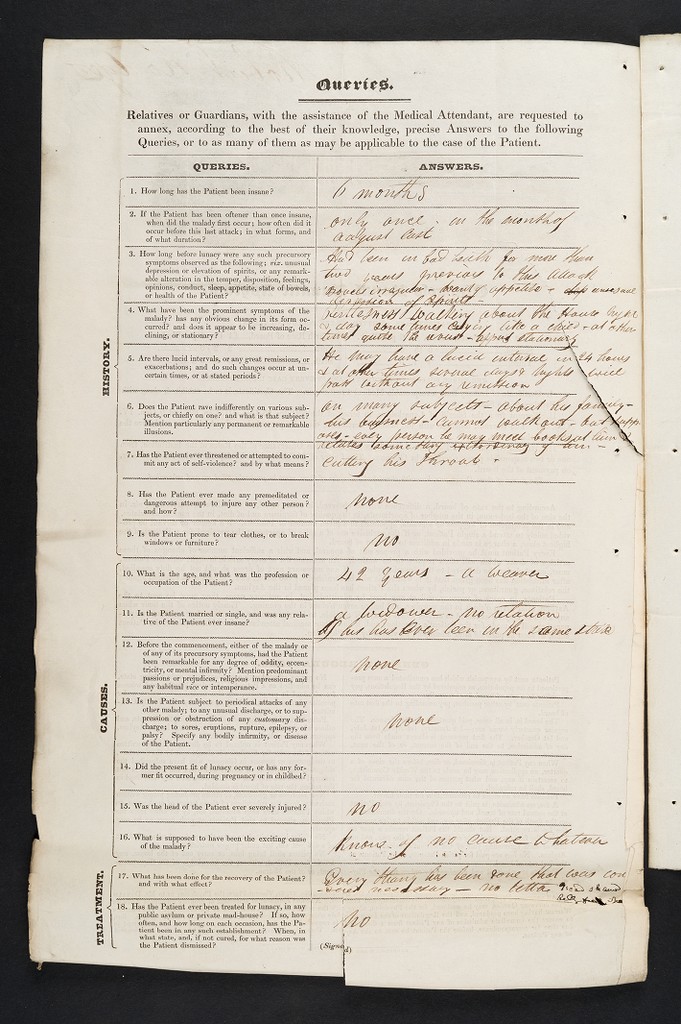 Queries.
Relatives or Guardians, with the assistance of the Medical Attendant, are requested to
annex, according to the best of their knowledge, precise Answers to the following
Queries, or to as many of them as may be applicable to the case of the Patient.
QUERIES.
ANSWERS.
HISTORY.
1. How long has the Patient been insane?
6 months
2. If the Patient has been oftener than once insane,
when did the malady first occur; how often did it
occur before this last attack; in what forms, and
of what duration?
only once - in the month of
august last
3. How long before lunacy were any such precursory
symptoms observed as the following; viz. unusual
depression or elevation of spirits, or any remark-
able alteration in the temper, disposition, feelings,
opinions, conduct, sleep, appetite, state of bowels,
or health of the Patient?
Had been in bad health for more than
two years previous to this attack
Bowels irregular - appetite - unusual
depression of spirits -
4. What have been the prominent symptoms of the
malady? has any obvious change in its form oc-
curred? and does it appear to be increasing, de-
clining, or stationary?
restlessness walking about the House night
& day some times crying like a child - at other
times quite the - stationary
5. Are there lucid intervals, or any great remissions, or
exacerbations; and do such changes occur at un-
certain times, or at stated periods?
He may have a lucid interval in 24 hours
& at other times several days & nights will
pass without any remission
6. Does the Patient rave indifferently on various sub-
jects, or chiefly on one? and what is that subject?
Mention particularly any permanent or remarkable
illusions.
on many subjects - about his family -
his business - cannot - but supp
oses every person he may meet looks at him
relates something of him -
7. Has the Patient ever threatened or attempted to com-
mit any act of self-violence? and by what means?
cutting his Throat -
8. Has the Patient ever made any premeditated or
dangerous attempt to injure any other person?
and how?
none
9. Is the Patient prone to tear clothes, or to break
windows or furniture?
no
CAUSES.
10. What is the age, and what was the profession or
occupation of the Patient?
42 years - a weaver
11. Is the Patient married or single, and was any re-
lative of the Patient ever insane?
a widower - no relation
of his has ever been in the same state
12. Before the commencement, either of the malady or
of any of its precursory symptoms, had the Patient
been remarkable for any degree of oddity, eccen-
tricity, or mental infirmity? Mention predominant
passions or prejudices, religious impressions, and
any habitual vice or intemperance.
none
13. Is the Patient subject to periodical attacks of any
other malady; to any unusual discharge, or to sup-
pression or obstruction of any customary dis-
charge; to sores, eruptions, rupture, epilepsy, or
palsy? Specify any bodily infirmity, or disease
of the Patient.
none
14. Did the present fit of lunacy occur, or has any for-
mer fit occurred, during pregnancy or in childbed?
15. Was the head of the Patient ever severely injured?
no
16. What is supposed to have been the exciting cause
of the malady?
know of no cause whatever
TREATMENT.
17. What has been done for the recovery of the Patient?
and with what effect?
Every thing has been done that was con
necessary - no better
18. Has the Patient ever been treated for lunacy, in any
public asylum or private mad-house? If so, how
often, and how long on each occasion, has the Pa-
tient been in any such establishment? When, in
what state, and, if not cured, for what reason was
the Patient dismissed?
No
(Signed)